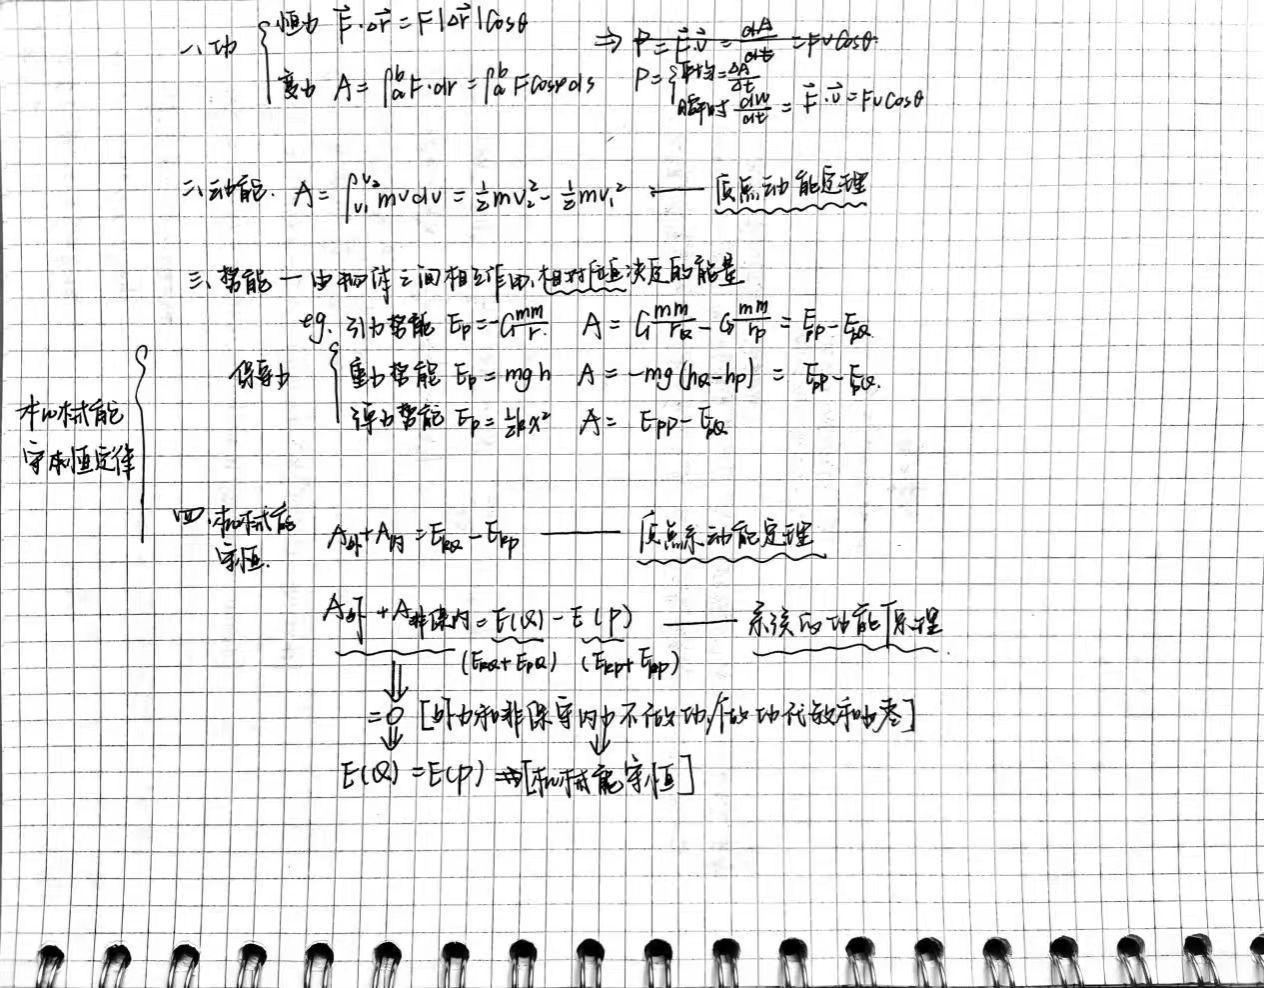 一、功 { 恒力 F⃗·Δr⃗ = F|Δr⃗|Cosθ
变力 A = ∫ₐᵇ F·dr = ∫ₐᵇ Fcosθds
⇒ P = F⃗·v⃗ = dA/dt = FvCosθ
P = { 平均 = ΔA/Δt
瞬时 dw/dt = F⃗·v⃗ = FvCosθ
二、动能. A = ∫ᵥ₁ᵛ² mvdv = ½mv₂² - ½mv₁² —— 质点动能定理
三、势能 — 由物体之间相互作用、相对位置决定的能量
eg. 引力势能 Ep = -G mm/r. A = G mm/rQ - G mm/rp = EpP - EpQ
保守力 { 重力势能 Ep = mgh A = -mg(hQ-hp) = EpP - EpQ.
弹力势能 Ep = ½kx² A = EpP - EpQ
机械能
守恒定律
四、机械能
守恒.
A外+A内 = EkQ - Ekp —— 质点系动能定理
A外 + A非保内 = E(Q) - E(P) —— 系统的功能原理
(EkQ+EpQ) (Ekp+Epp)
⇓
=0 [外力和非保守内力不做功/做功代数和为零]
⇓ ↓
E(Q) = E(P) ⇒ [机械能守恒]